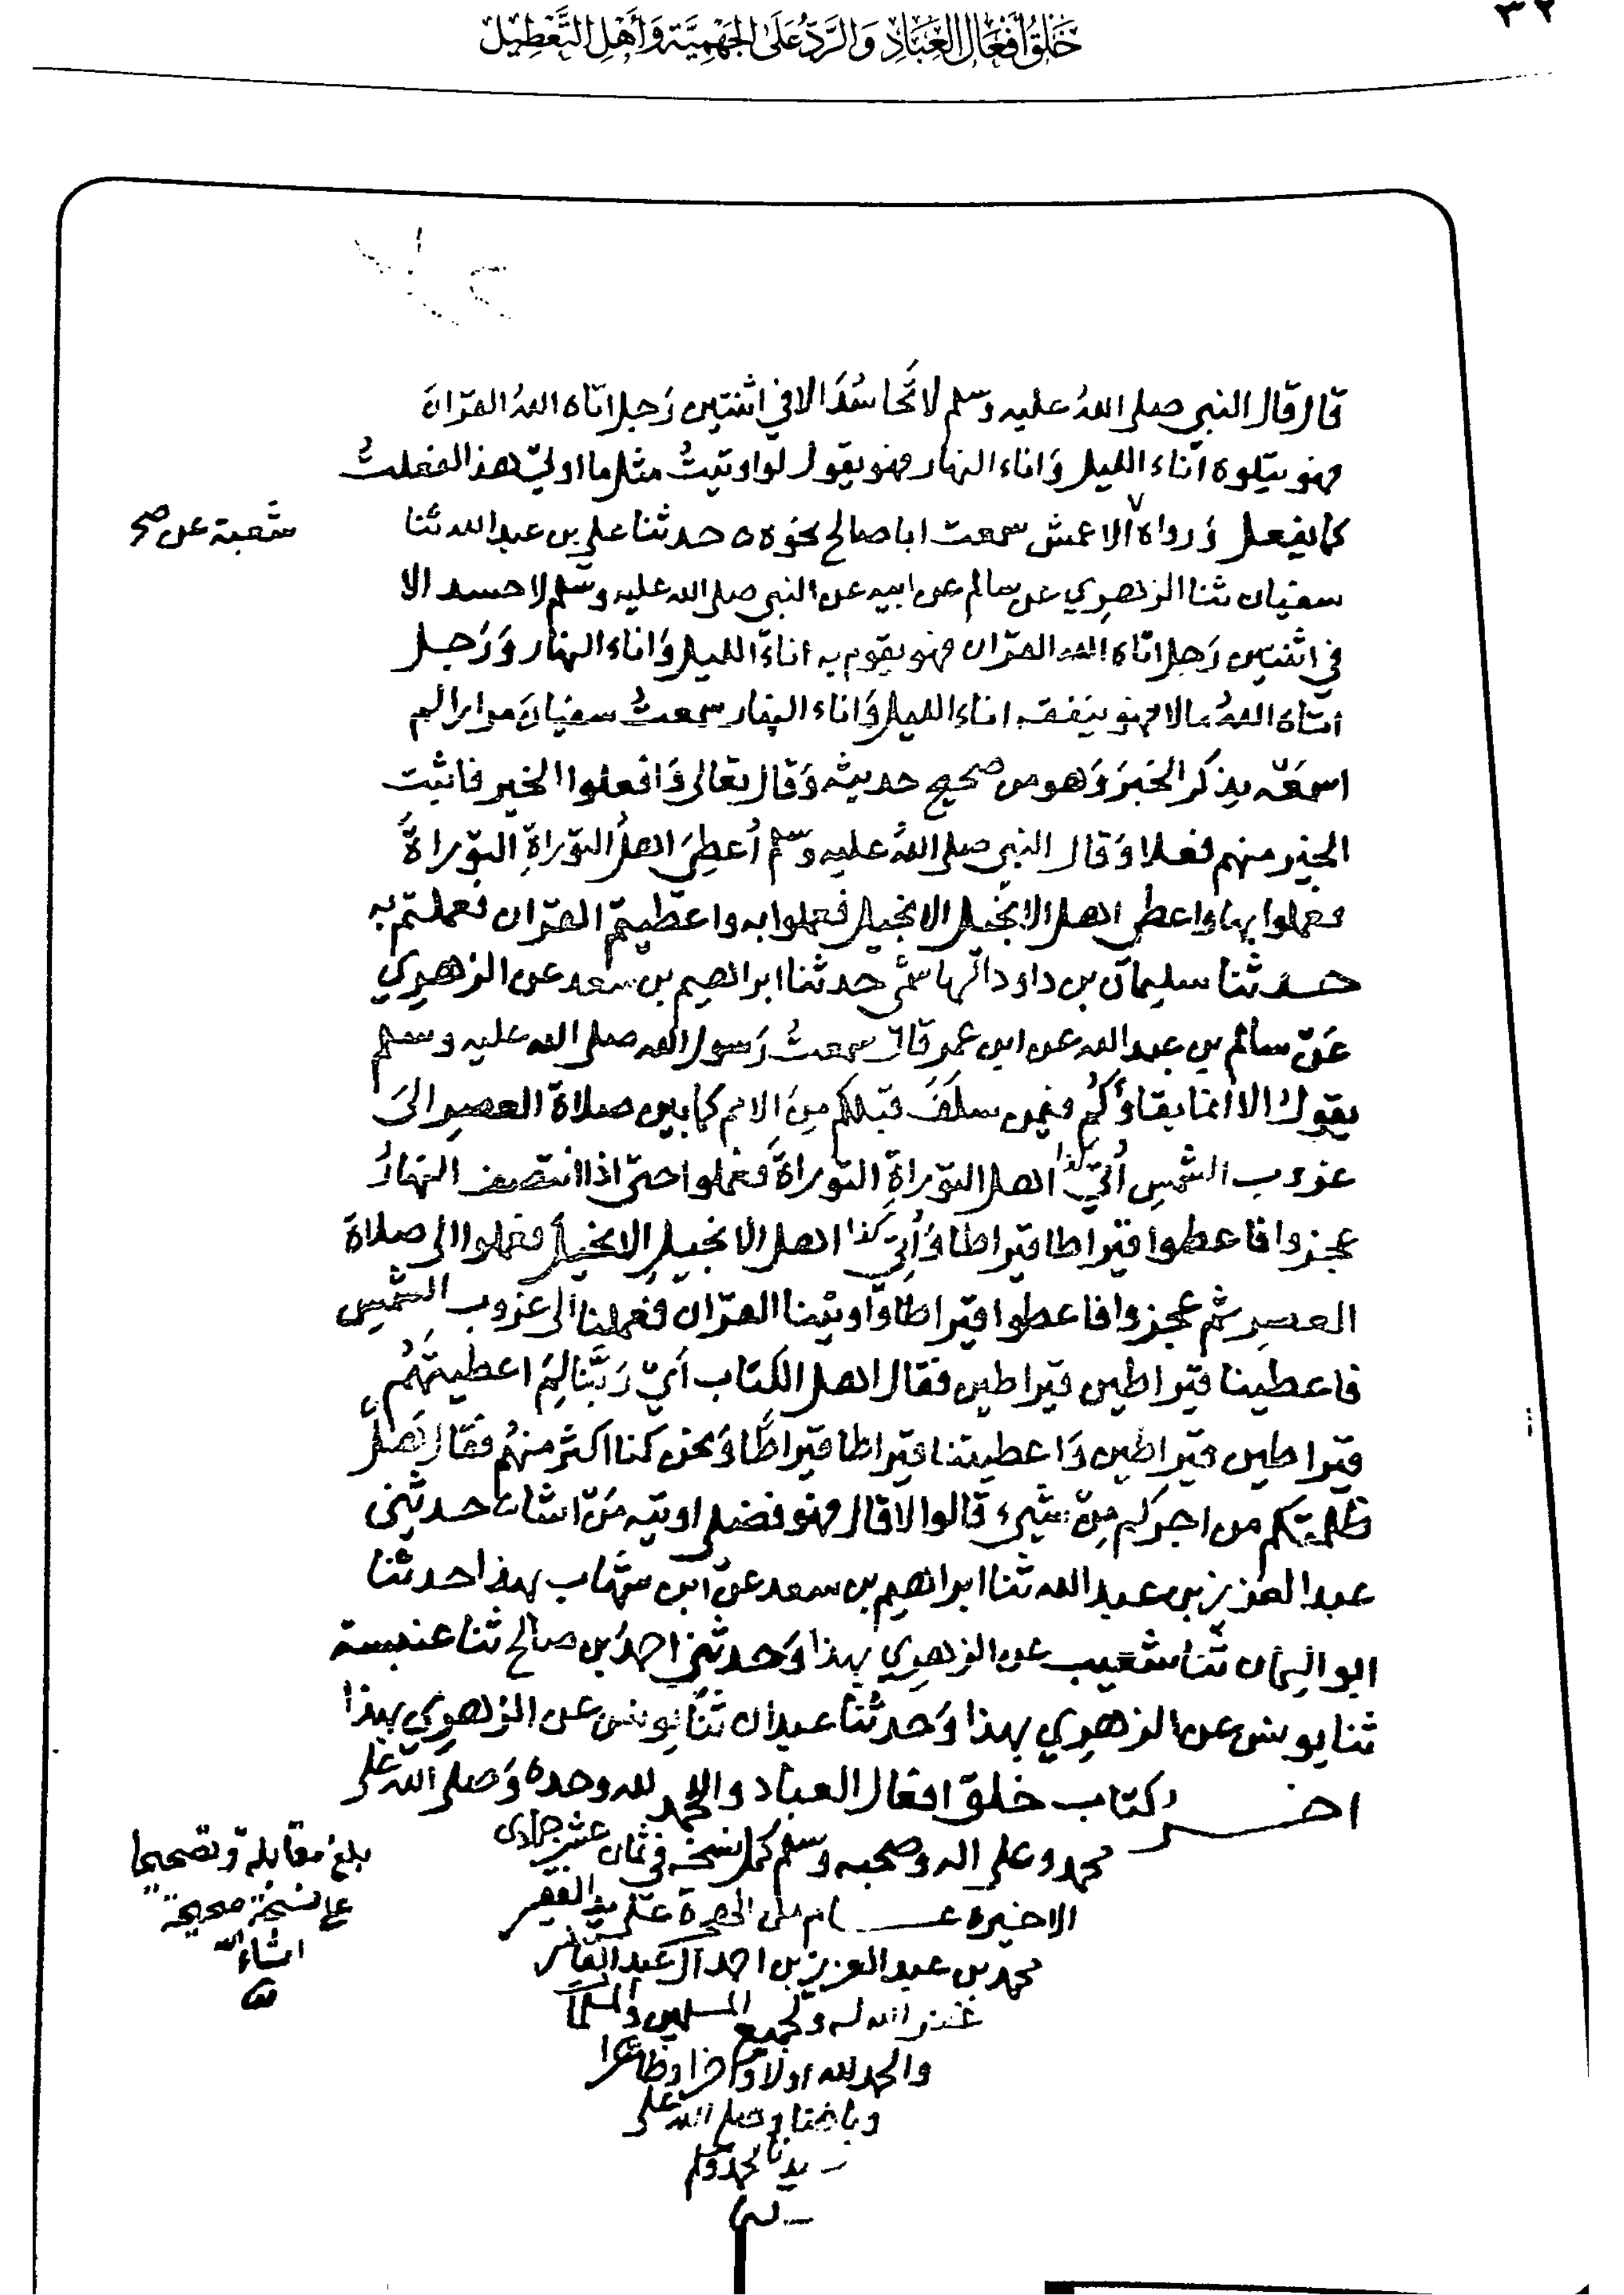 ٣٢
خَلْقُ أَفْعَالِ العِبَادِ وَالرَّدُّ عَلَى الجَهْمِيَّةِ وَأَهْلِ التَّعْطِيلِ
قال قال النبي صلى اللهُ عليه وسلم لا تَحَاسُدَ الا في اثنتين رَجل اتاه اللهُ القران
فهو يتلوه اناء الليل وَاناء النهار فهو يقول لو اوتيتُ مثل ما اوتي هذا لفعلتُ
كما يفعل وَرواه الاعمش سمعت ابا صالح نحوه ه حدثنا علي بن عبد الله ثنا
شعبة عن صح
سفيان ثنا الزهري عن سالم عن ابيه عن النبي صلى الله عليه وسلم لا حسد الا
في اثنتين رَجل اتاه الله القران فهو يقوم به اناءَ الليل وَاناء النهار وَرَجل
اتاه اللهُ مالا فهو ينفقه اناء الليل وَاناء النهار سمعتُ سفيانَ مرارا لم
اسمعْه يذكر الخبَر وَهو من صحيح حديثه وَقال تعالى وَافعلوا الخير فاثبت
الخير منهم فعلا وَقال النبي صلى اللهُ عليه وسلم اُعطِيَ اهلُ التوراةِ التوراةَ
فعملوا بها واعطي اهل الانجيل الانجيل فعملوا به واعطيتم القران فعملتم به
حدثنا سليمان بن داود الهاشمي حدثنا ابراهيم بن سعد عن الزهري
عَن سالم بن عبد الله عن ابن عمر قال سمعتُ رَسول الله صلى الله عليه وسلم
يقولُ الا انما بقاؤُكُم فيمن سلفَ قبلكم مِنَ الامم كما بين صلاة العصرِ الىَ
غروب الشمسِ اُتيَ كذا اهل التوراةِ التوراةَ فعملوا حتى اذا انتصف النهارُ
عجزوا فاعطوا قيراطا قيراطا وَاُتي كذا اهل الانجيلِ الانجيلَ فعملوا الى صلاة
العصرِ ثم عجزوا فاعطوا قيراطا وَاوتينا القران فعملنا الى غروب الشمس
فاعطينا قيراطين قيراطين فقال اهل الكتاب اَيْ رَبَّنا لِمَ اعطيتَهُم
قيراطين قيراطين وَاعطيتنا قيراطا قيراطا وَنحن كنا اكثر منهُم فقال هَل
ظلمتكم من اجركم مِن شيء قالوا لا قال فهو فضلي اوتيه مَن اشاء حدثني
عبد العزيز بن عبد الله ثنا ابراهيم بن سعد عن ابن شهاب بهذا حدثنا
ابو اليمان ثنا شعيب عن الزهري بهذا وَحدثني احمدُ بن صالح ثنا عنبسة
ثنا يونس عن الزهري بهذا وَحدثنا عبدان ثنا يونس عن الزهري بهذا
اخر كتاب خلق افعال العباد والحمد لله وحده وَصلى الله على
محمد وعلى اله وصحبه وسلم كمل نسخه في ثمان عشر جمادى
الاخيرة من الهجرة على يد الفقير
محمد بن عبد العزيز بن احمد
غفر الله له ولجميع المسلمين والمسلمات
والحمد لله اولا واخرا وظاهرا
وباطنا وصلى الله على
بلغ مقابلة وتصحيحا
على نسخة صحيحة
انشاء الله